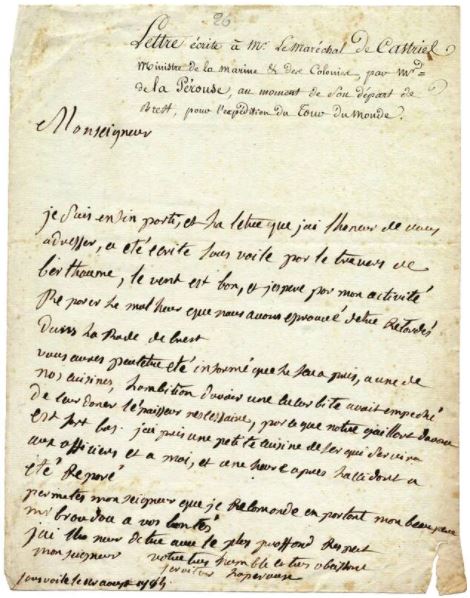 26
Lettre écrite à Mr. Le Maréchal De Castries
Ministre de la marine & des Colonies, par Mr.
de la Pérouse, au moment de son départ de
Brest, pour l'expédition du Tour du Monde.
Monseigneur
je suis enfin parti, et la letre que j'ai l'honeur de vous
adresser, a eté ecrite sous voile par le travers de
bertheaume, le vent est bon, et j'espere par mon activité
Reparer le malheur que nous avons eprouvé d'etre Retardés
Dans la Rade de brest
vous aures peutetre eté informé que le feu a pris, a une de
nos cuisines, l'ambition d'avoir une cucurbite avait empeché
de leur doner l'epaisseur necessaire, parce que notre gaillard
est fort bas. j'ai pris une petite cuisine de fer qui servira
aux officiers et a moi, et une heure apres l'accident a
eté Reparé
permetes monseigneur que je Recomande en partant mon beaufrere
mr broudou a vos bontés
j'ai l'honeur d'etre avec le plus proffond Respect
monseigneur votre tres humble et tres obeissant
serviteur Laperouse
sous voile le 1er aoust 1785